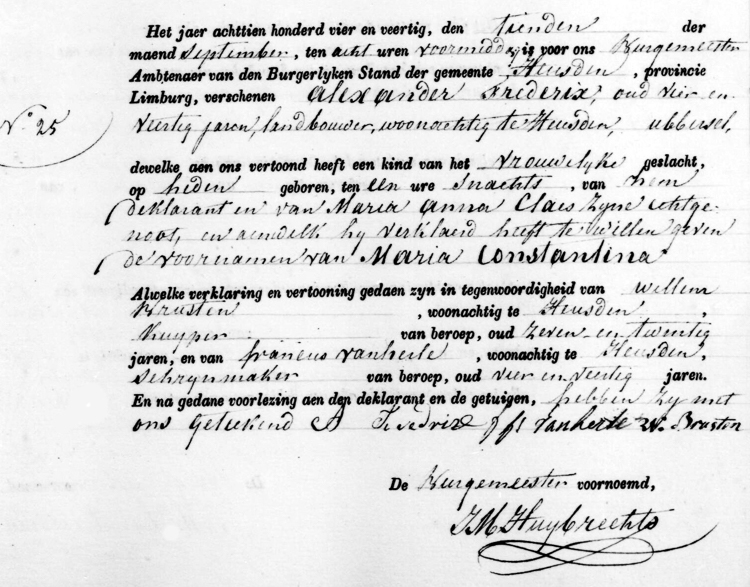 Het jaer achttien honderd vier en veertig, den tienden der
maend September, ten acht uren voormiddag is voor ons Burgemeester
Ambtenaer van den Burgerlyken Stand der gemeente Heusden, provincie
Limburg, verschenen alexander frederix, oud vier en
N.º 25
veertig jaren, landbouwer, woonachtig te Heusden, ubbersel,
dewelke aen ons vertoond heeft een kind van het vrouwelyke geslacht,
op heden geboren, ten een ure snachts, van hem
deklarant en van Maria anna Claes zyne echtge-
noot, en aendelk hy verklaerd heeft te willen geven
de voornamen van Maria Constantina
Alwelke verklaring en vertooning gedaen zyn in tegenwoordigheid van willem
Brusten, woonachtig te Heusden,
kuyper van beroep, oud zeven en twentig
jaren, en van francus vanherle, woonachtig te Heusden,
schrynmaker van beroep, oud vier en veertig jaren.
En na gedane voorlezing aen den deklarant en de getuigen, hebben zy met
ons geteekend A Fredrix fs vanherle W. Brusten
De Burgemeester voornoemd,
JM Huybrechts